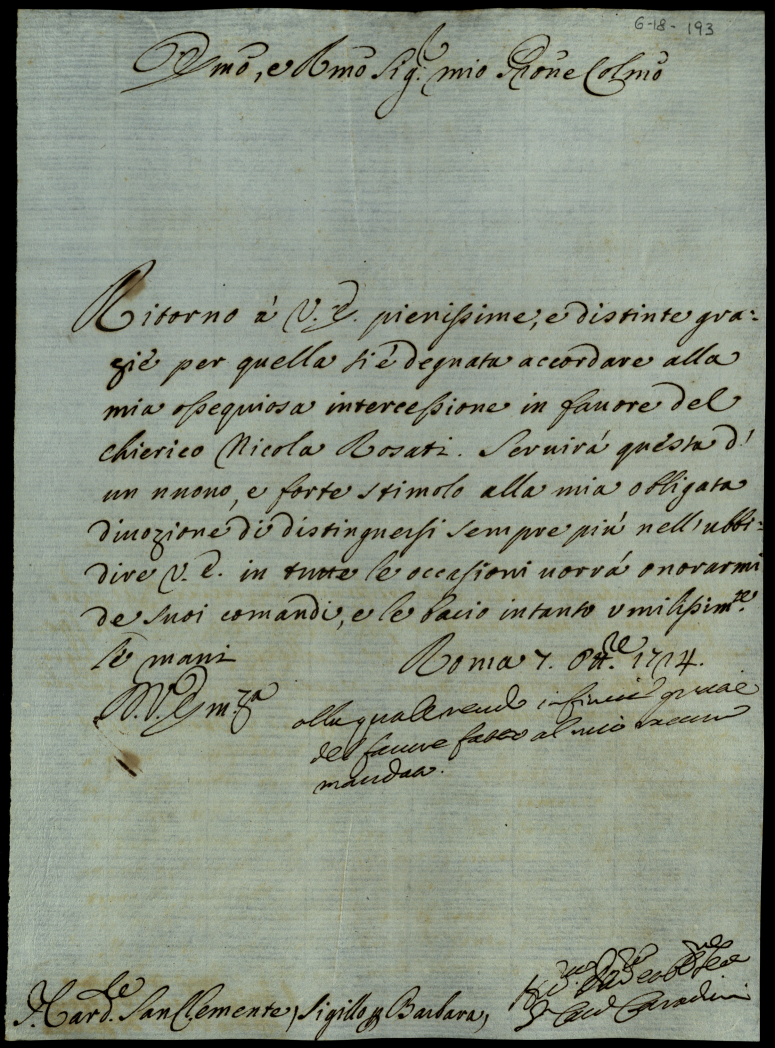 6-18-193
Emõ, e Rmõ Sig.r mio Prone Colmõ
Ritorno à V. E. pienissime, e distinte gra=
zie per quella si è degnata accordare alla
mia ossequiosa intercessione in fauore del
chierico Nicola Rosati. Seruirà questa d'
un nuouo, e forte stimolo alla mia obligata
diuozione di distinguersi sempre più nell'ubbi=
dire V. E. in tutte le occasioni uorrà onorarmi
de suoi comandi, e le bacio intanto vmilissim.te
le mani Roma 7. Ott.re 1714.
D. V. Em.za
alla quale rendo infinite grazie
del fauore fatto al mio raccom
mandato.
S. Card.le San Clemente, Sigillo, Barbara,